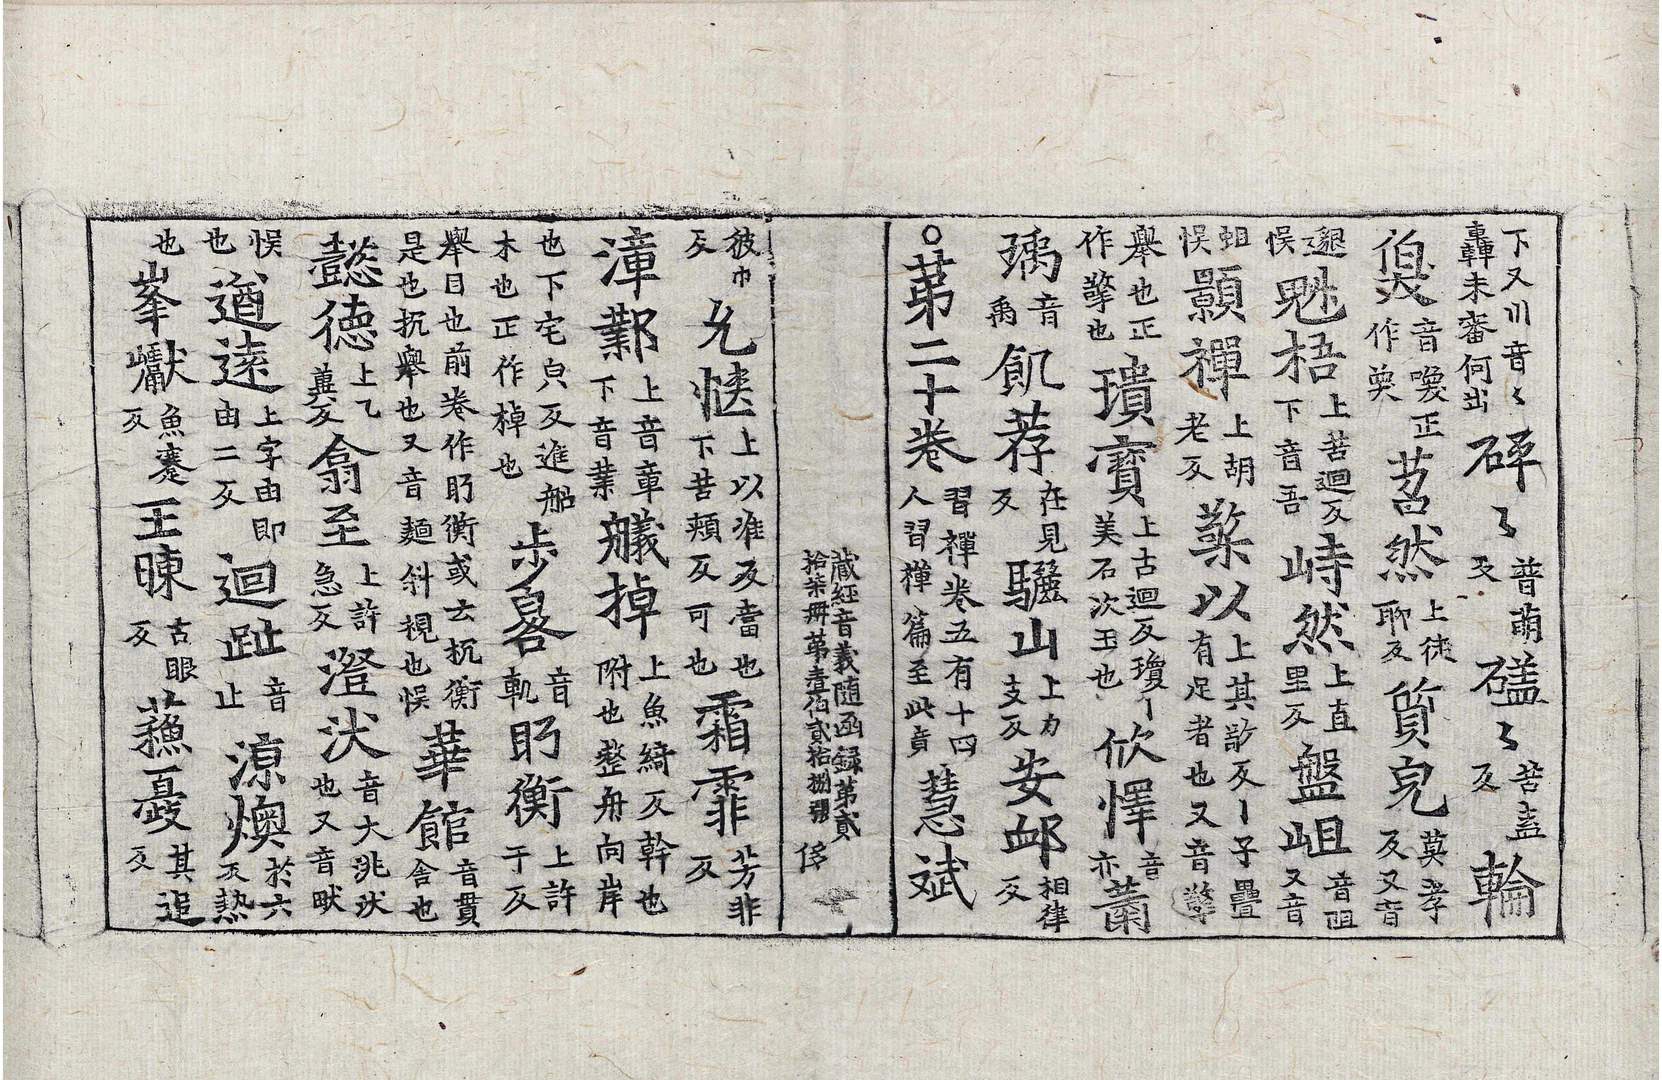 下又川音〻轟未審何出碎〻普萌反礚〻苦盍反輪
奐音喚正作奐苕然上徒聊反貿皃莫孝反又音
邈悮魁梧上苦迴反下音吾峙然上直里反盤岨音阻又音
蛆悮顥禪上胡老反䒳以上其敬反丨子疊有足者也又音擎
舉也正作擎也瓌寳上古迴反瓊丨美石次玉也欣懌音亦蕭
瑀音禹飢荐在見反驪山上力支反安䘏相律反
○苐二十卷習禪卷五有十四人習禪篇至此竟慧斌
藏經音義随函録第貳拾柒册苐壹伯貳拾捌張 侈
彼巾反允愜上以准反當也下苦頰反可也霜霏芳非反
漳鄴上音章下音業艤掉上魚綺反幹也附也整舟向岸
也下宅皃反進船木也正作棹也步晷音軌盱衡上許于反
舉目也前卷作盱衡或云抗衡是也抗舉也又音麺斜視也悮華館音貫舍也
懿德上乙兾反翕至上許急反澄汱音大洮汱也又音畎
悮也遒逺上字由即由二反迴趾音止凉燠於六反熱
也峯巘魚蹇反王暕古眼反蘓憂其追反